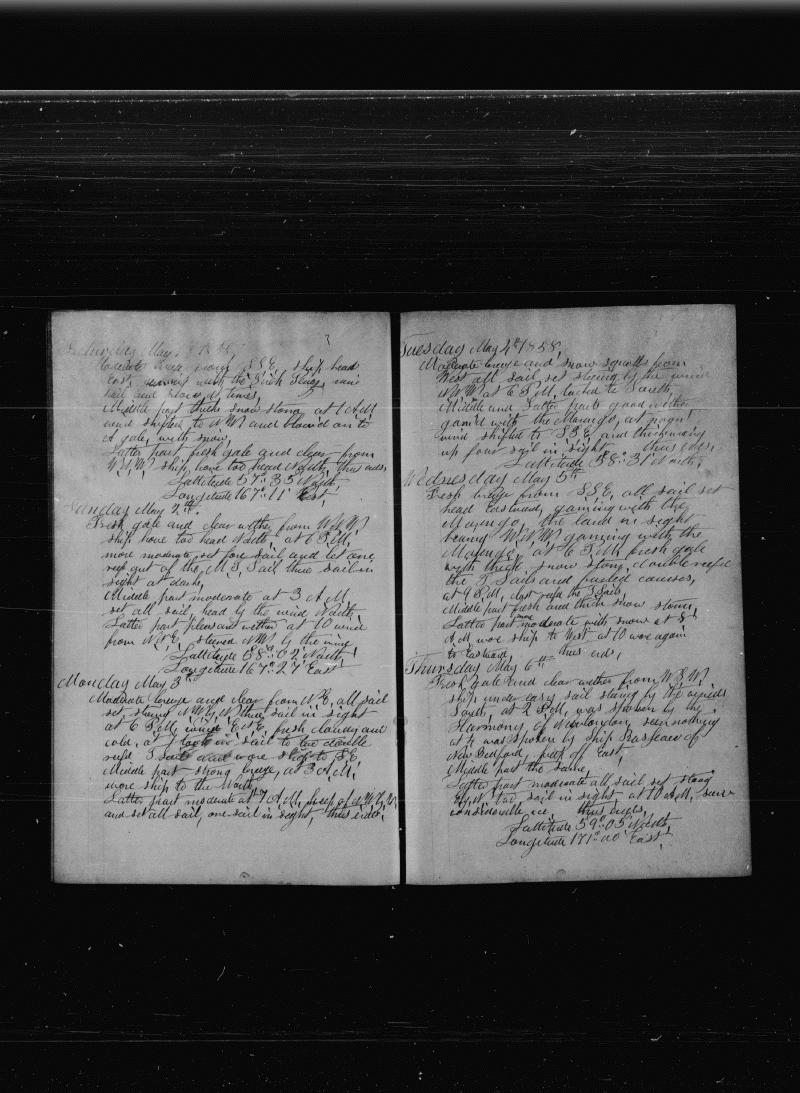 Saturday May
Moderate breze from SSE, ship head
East, gaming with the
hail and
Middle part thicke snow stong, at 1 A,M
wind shifted to NW and on to
A gale, with snow,
Latter part fresh gale and clear from
WNW, ship, hove too head North, thus ends,
Lattitude 57º 35 North
Longitude 167º 11' East,
Sunday May 2nd.
Fresh gale and clear wether from WNW
ship hove too head North, at 6 P,M,
more moderate, set fore sail and let one
reef out of the M, T, Sail three sail in
sight at dark,
Middle part moderate at 3 A,M.
set all sail, head by the wind North,
Latter part pleasant wether at 10 wind
from NNE, steered NW by the wind
Lattitude 58º 02' North,
Longitude 167º 27' East
Monday May 3rd
Moderate breeze and clear from NE, all sail
set stering NW, three sail in sight
at 6 P,M, wind ENE, fresh cloudy and
cold, at took in sail to double
reefd T sails and wore ship to SE,
Middle part strong breeze, at 3 A,M,
wore ship to the North
Latter part moderate at 7 A,M,
and set all sail, one sail in sight thus ends,
Tuesday May 4th 1858,
Moderate breeze and snow squalls from
West all sail set steering by the wind
NNW at 6 P,M, tacked to South,
Middle and Latter parts good wether
gamed with the Marengo, at noon
wind shifted to SSE, and thickening
up four sail in sight thus ends,
Lattitude 58º 31' North,
Wednesday May 5th
Fresh breeze from SSE, all sail set
head Eastward, gaming with the
Marengo, the land in sight
bearing WNW gaming with the
Marengo at 6 P,M, fresh gale
with thick snow stong, double reefd
the T Sails and furled courses,
at 9 P,M, clost reefd the T Sails,
Middle part fresh and thick snow storm,
Latter part more moderate with snow at 8
A,M, wore ship to West at 10 wore again
to Eastward, thus ends,
Thursday May 6th
Fresh gale and clear wether from WSW,
ship under easy sail stering by the wind
South, at 2 P,M, was spoken by the
Harmony of Newlondon, seen nothing
at 4 was spoken by Ship of
New Bedford, kept off East,
Middle part the same,
Latter part moderate all sail set steering
two sail in sight at 10 A,M, saw
considerable ice thus ends,
Lattitude 59º 05' North,
Longitude 171º 00' East,